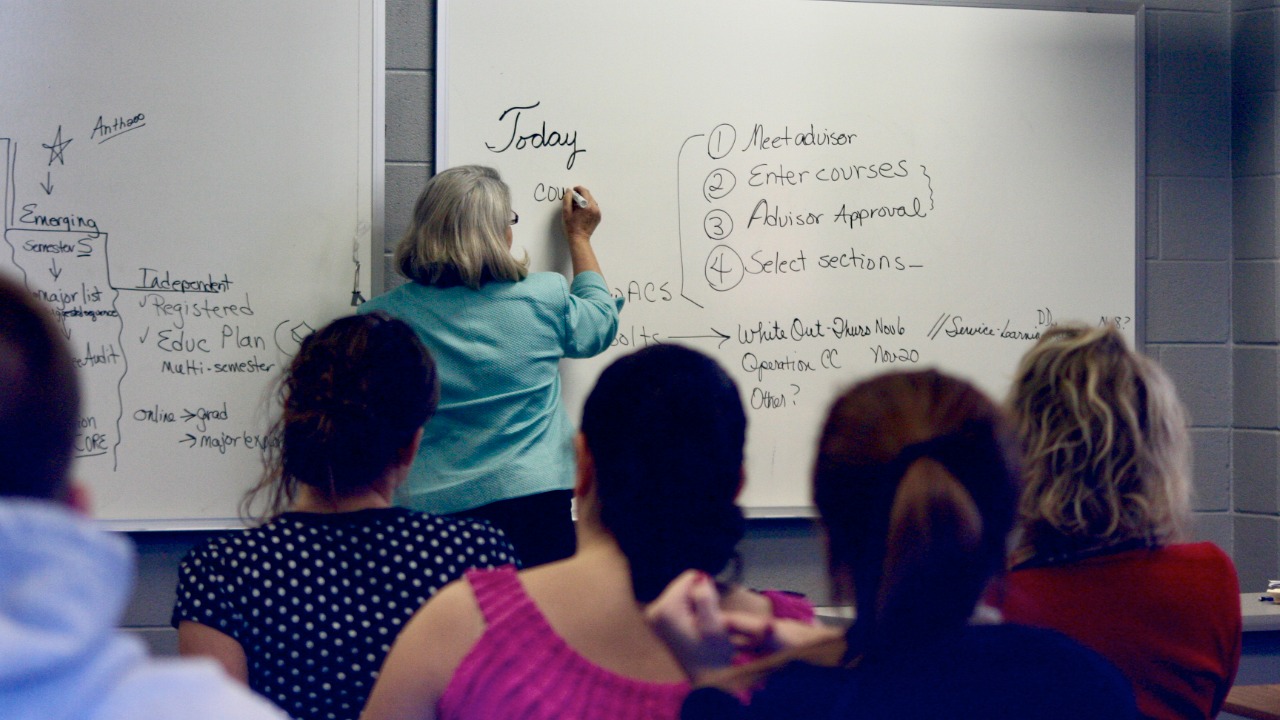 Emerging
Semesters
major list
Audit
CORE
Independent
✓ Registered
✓ Educ Plan
Multi-semester
online → grad
→ major
Today
cou
① Meet advisor
② Enter courses
③ Advisor Approval
④ Select sections
ACS
→ White Out-Thurs Nov6 // Service-Learning
Operation CC Nov20
Other?